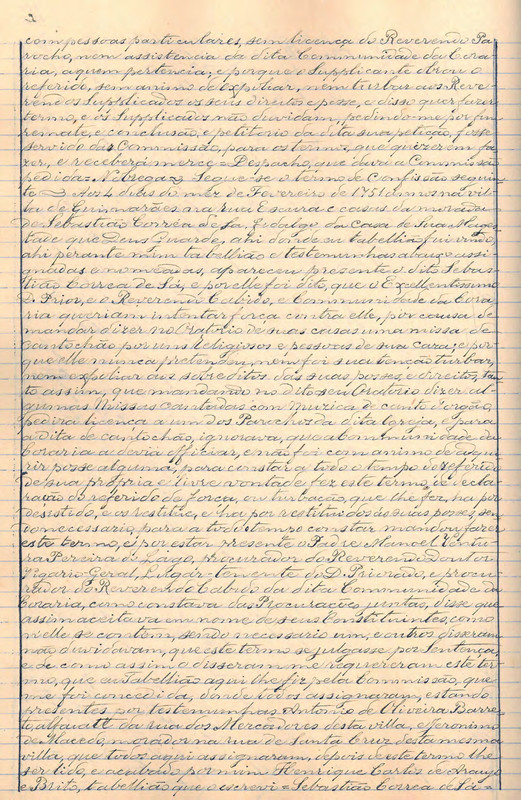 2
com pessoas particulares, sem licença do Reverendo Pa-
rocho, nem assistencia da dita Communidade da Cora-
ria, a quem pertencia, e porque o Supplicante obrou o
referido, sem animo de expoliar, nem turbar aos Reve-
rendos Supplicados os seus direitos e posse, e disso quer fazer
termo, e os Supplicados não duvidam, pedindo-me por fim
remate, e conclusão, e petitorio da dita sua petição, fosse
servido das Commissão, para os termos, que quizerem fa-
zer, e receberá mercê = Despacho, que dava a Commissão
pedida = Nobrega = Segue-se o termo de Confissão seguin-
te = Aos 4 dias do mez de Fevereiro de 1751 annos na vil-
la de Guimarães na rua Escura e casas da morada
de Sebastião Corrêa de Sá, Fidalgo da Casa de Sua Mages-
tade que Deus Guarde, ahi donde eu tabellião fui vindo,
ahi perante mim tabellião e testemunhas abaixo assi-
gnadas e nomeadas, appareceu presente o dito Sebas-
tião Corrêa de Sá, e por elle foi dito, que o Excellentissimo
D. Prior, e o Reverendo Cabido, e Communidade da Cora-
ria queriam intentar força contra elle, por causa de
mandar dizer no Oratorio de suas casas uma missa de
Cantochão por uns religiosos e pessoas de sua casa, e por-
que elle nunca pretendeu, nem foi sua tenção turbar,
nem expoliar aos sobreditos das suas posses, e direitos, tan-
to assim, que mandando no dito seu Oratorio dizer al-
gumas Missas cantadas com Muzica de canto d'orgão,
pedira licença a um dos Parochos da dita Igreja, e para
a dita de cantochão, ignorava, que a Communidade da
Coraria a devia officiar, e não foi com animo de adqui-
rir posse alguma, para constar q todo o tempo do referido
de sua propria e livre vontade fez este termo, de decla-
ração do referido de força, ou turbação, que lhe fez, ha por
desistido, e os restitue, e ha por restituidos ás suas posses, sen-
do necessario, para a todo tempo constar mandou fazer
este termo, e por estar presente o Padre Manoel Ventu-
ra Pereira do Lago, procurador do Reverendo Doutor
Vigario Geral, Lugar-tenente do D. Priorado, e procu-
rador do Reverendo Cabido da dita Communidade da
Coraria, como constava das Procurações juntas, disse que
assim aceitava em nome de seus Constituintes, como
n'elle se contém, sendo necessario um, e outros disseram
não duvidavam, que este termo se julgasse por Sentença,
e de como assim o disseram me requereram este ter-
mo, que eu Tabellião aqui lhe fiz pela Commissão, que
me foi concedida, donde todos assignaram, estando
presentes por testemunhas Antonio de Oliveira Barre-
to, alfaiate da rua dos Mercadores desta villa, e Jeronimo
de Macedo, morador na rua de Santa Cruz desta mesma
villa, que todos aqui assignaram, depois de este termo lhe
ser lido, e acabado por mim Henrique Carlos de Araujo
e Brito, tabellião que o escrevi = Sebastião Corrêa de Sá =